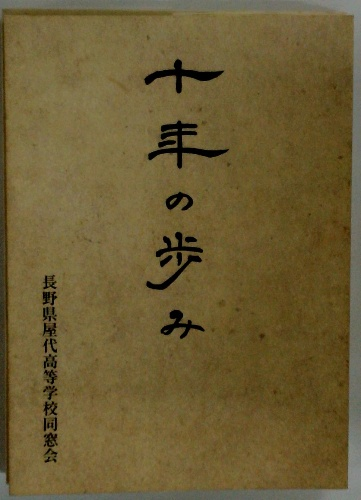 十年の歩み
長野県屋代高等学校同窓会